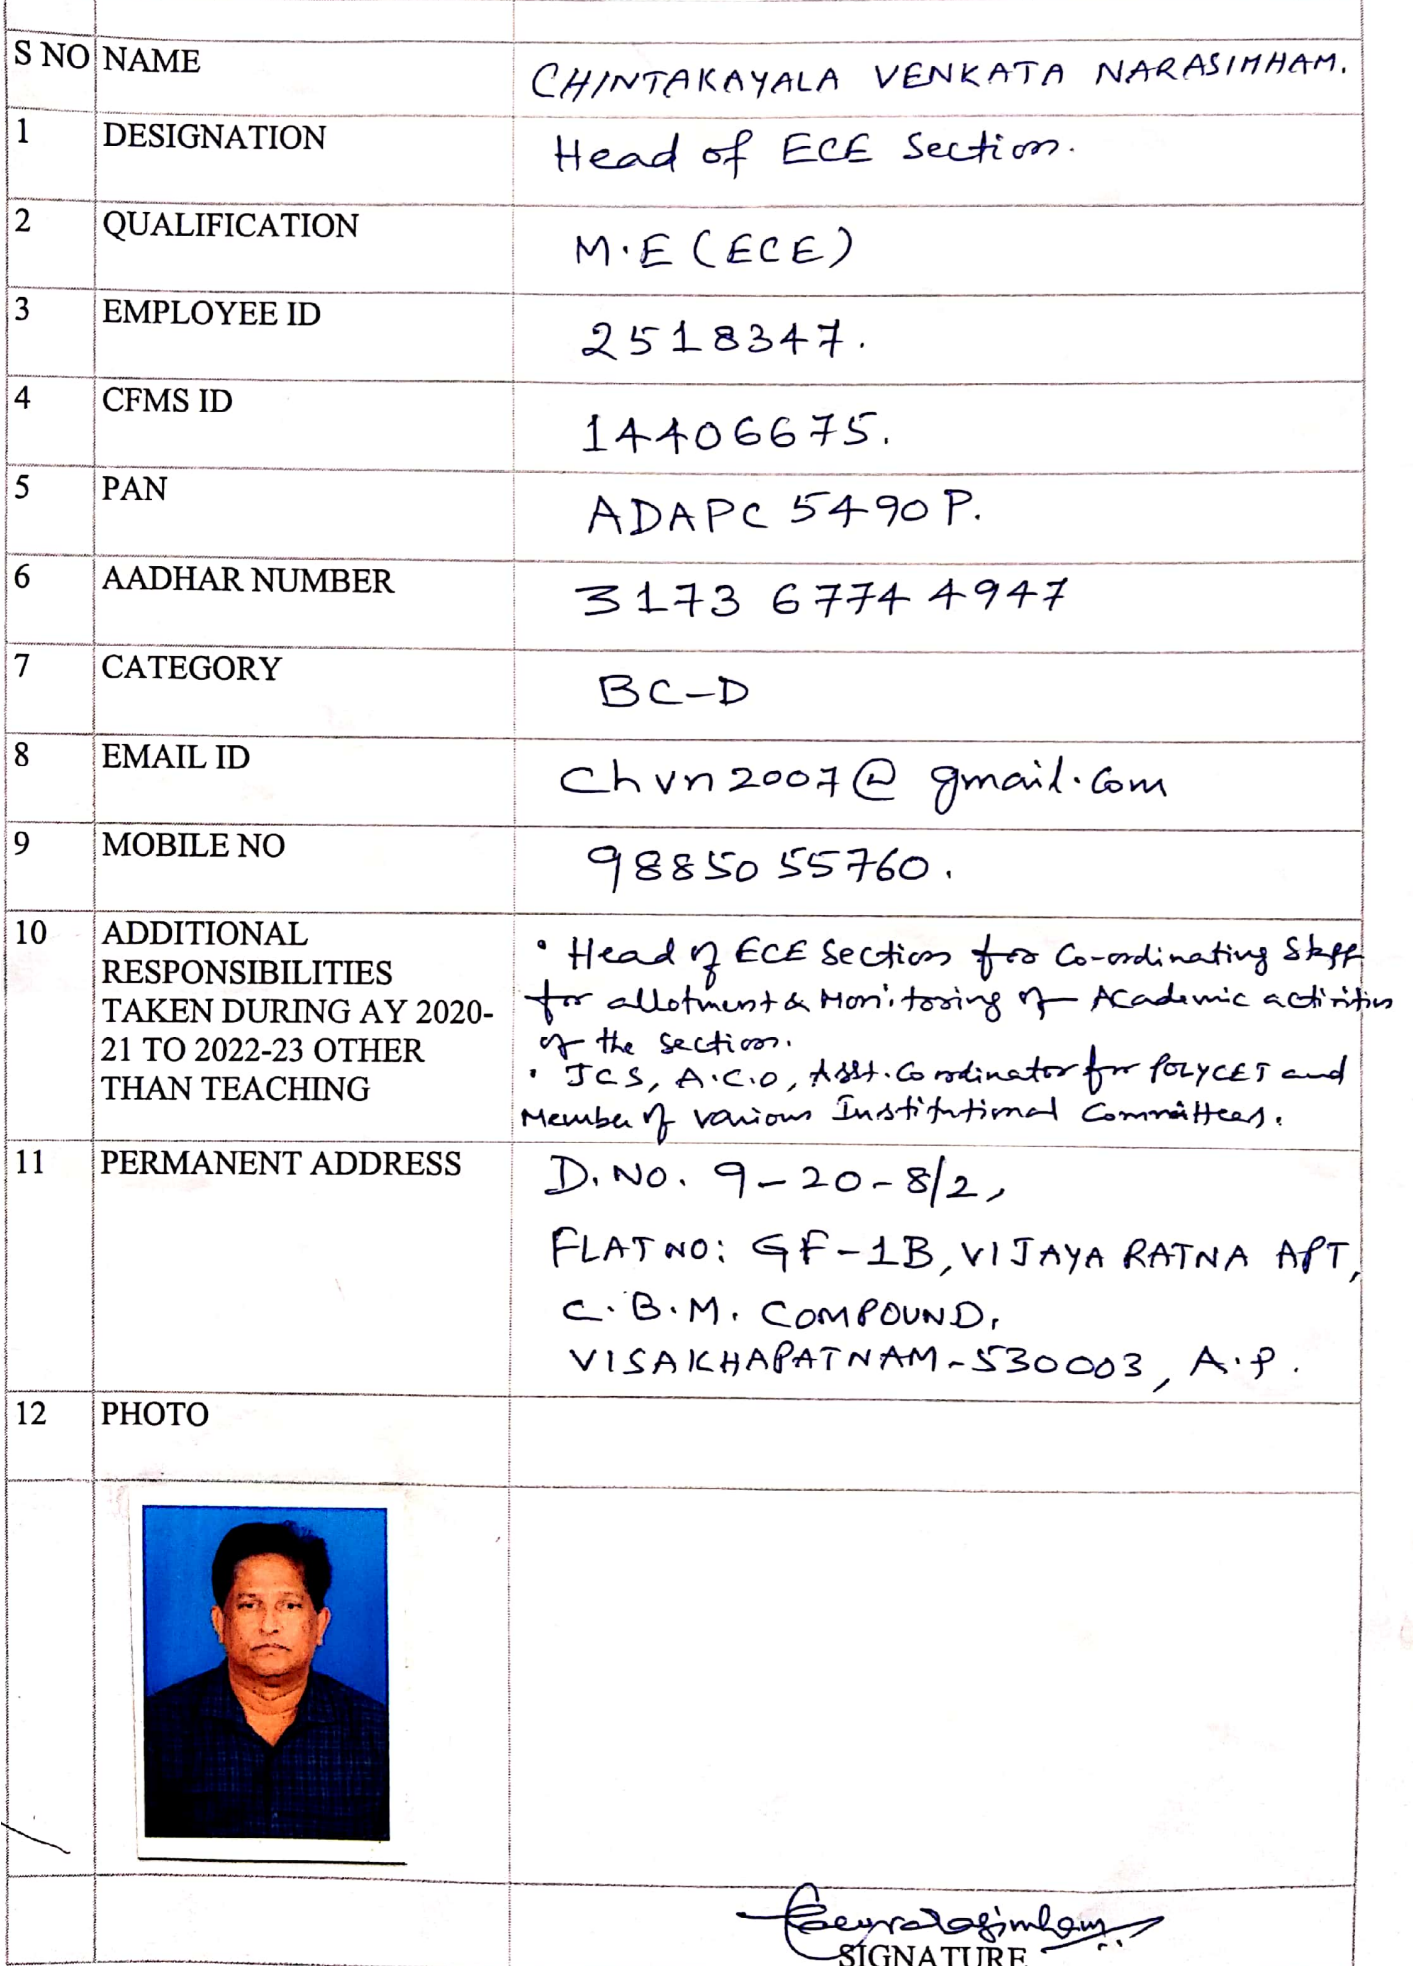 S NO NAME CHINTAKAYALA VENKATA NARASIMHAM.
1 DESIGNATION Head of ECE Section.
2 QUALIFICATION M.E (ECE)
3 EMPLOYEE ID 2518347.
4 CFMS ID 14406675.
5 PAN ADAPC 5490P.
6 AADHAR NUMBER 3173 6774 4947
7 CATEGORY BC-D
8 EMAIL ID chvn2007@gmail.com
9 MOBILE NO 98850 55760.
10 ADDITIONAL
RESPONSIBILITIES
TAKEN DURING AY 2020-
21 TO 2022-23 OTHER
THAN TEACHING
• Head of ECE Section for Co-ordinating Staff
for allotment & Monitoring of Academic activities
of the section.
• JCS, A.C.O, Asst. Coordinator for POLYCET and
Member of various Institutional Committees.
11 PERMANENT ADDRESS D. NO. 9-20-8/2,
FLAT NO: GF-1B, VIJAYA RATNA APT,
C.B.M. COMPOUND,
VISAKHAPATNAM-530003, A.P.
12 PHOTO
SIGNATURE